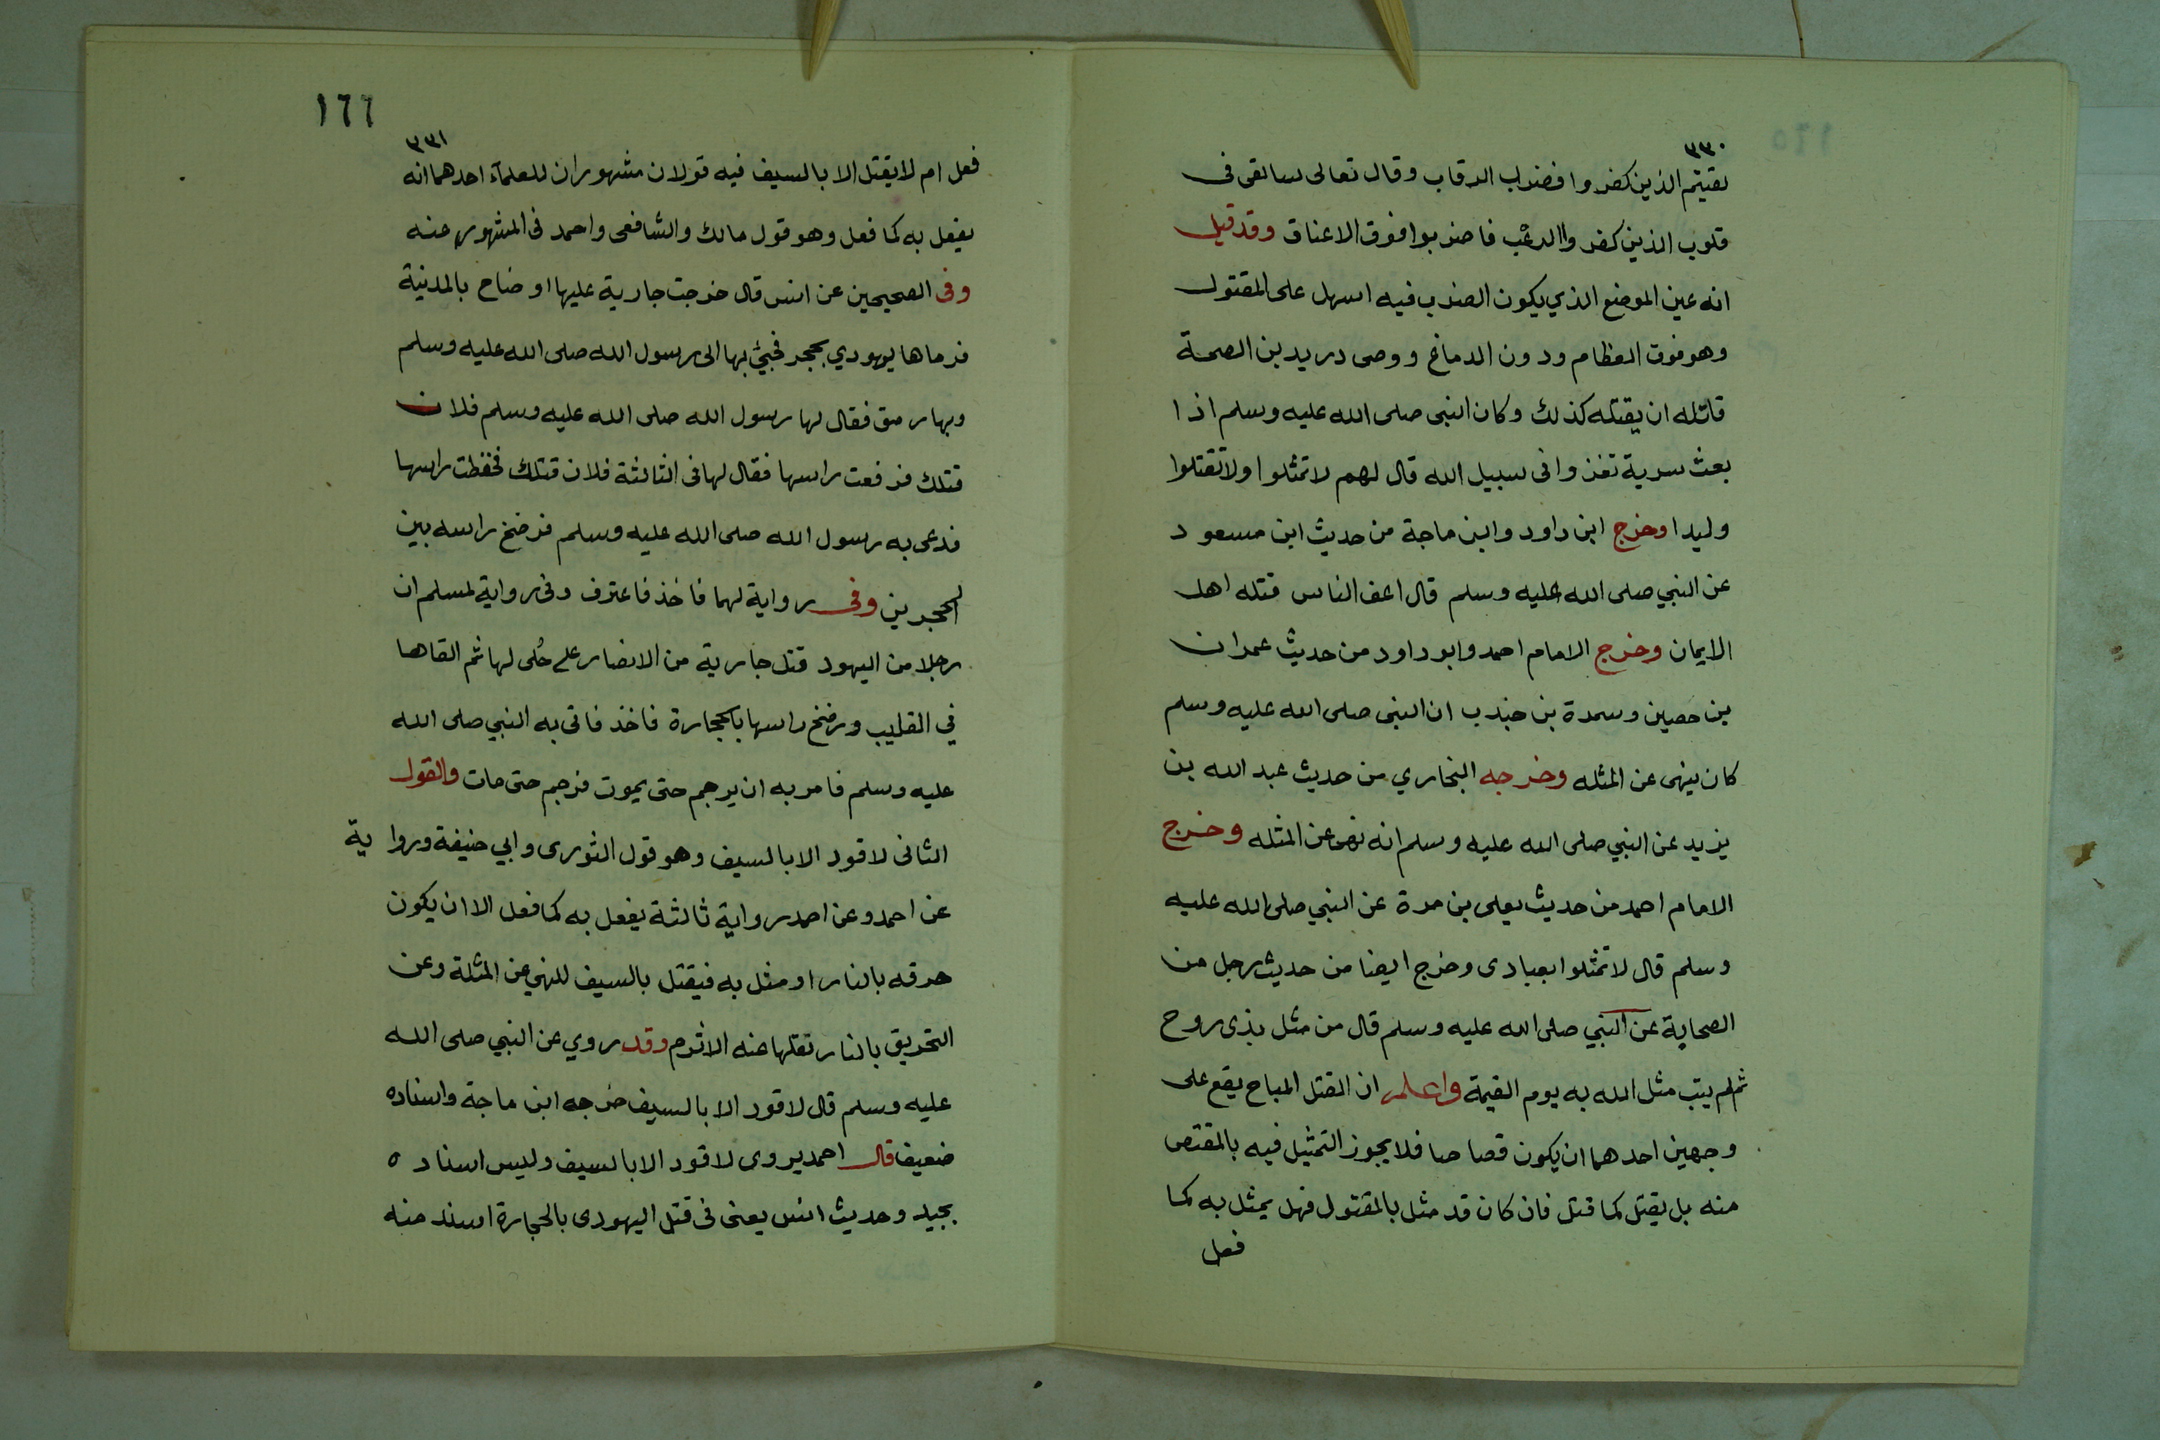 ٣٣٠
لقيتم الذين كفروا فضرب الرقاب وقال تعالى سالقى فى
قلوب الذين كفروا الرعب فاضربوا فوق الاعناق وقد قيل
انه عين الموضع الذي يكون الضرب فيه اسهل على المقتول
وهو فوق العظام ودون الدماغ ووصى دريد بن الصمة
قاتله ان يقتله كذلك وكان النبى صلى الله عليه وسلم اذا
بعث سرية تغزوا فى سبيل الله قال لهم لا تمثلوا ولا تقتلوا
وليدا وخرج ابن داود وابن ماجة من حديث ابن مسعود
عن النبي صلى الله عليه وسلم قال اعف الناس قتله اهل
الايمان وخرج الامام احمد وابو داود من حديث عمران
بن حصين وسمرة بن جندب ان النبى صلى الله عليه وسلم
كان ينهى عن المثله وخرجه البخاري من حديث عبد الله بن
يزيد عن النبي صلى الله عليه وسلم انه نهى عن المثله وخرج
الامام احمد من حديث يعلى بن مرة عن النبي صلى الله عليه
وسلم قال لا تمثلوا بعبادى وخرج ايضا من حديث رجل من
الصحابة عن النبي صلى الله عليه وسلم قال من مثل بذى روح
ثم لم يتب مثل الله به يوم القيمة واعلم ان القتل المباح يقع على
وجهين احدهما ان يكون قصاصا فلا يجوز التمثيل فيه بالمقتص
منه بل يقتل كما قتل فان كان قد مثل بالمقتول فهل يمثل به كما
فعل
١٦٦
٣٣١
فعل ام لا يقتل الا بالسيف فيه قولان مشهوران للعلمآء احدهما انه
يفعل به كما فعل وهو قول مالك والشافعى واحمد فى المشهور منه
وفى الصحيحين عن انس قال خرجت جارية عليها اوضاح بالمدنية
فرماها يهودي بحجر فجيئ بها الى رسول الله صلى الله عليه وسلم
وبها رمق فقال لها رسول الله صلى الله عليه وسلم فلان
قتلك فرفعت راسها فقال لها فى الثالثة فلان قتلك فخفظت راسها
فدعى به رسول الله صلى الله عليه وسلم فرضخ راسه بين
الحجرين وفى رواية لهما فاخذ فاعترف وفى رواية لمسلم ان
رجلا من اليهود قتل جارية من الانصار على حُلى لها ثم القاها
في القليب ورضخ راسها بالحجارة فاخذ فاتى به النبي صلى الله
عليه وسلم فامر به ان يرجم حتى يموت فرجم حتى مات والقول
الثانى لا قود الا بالسيف وهو قول الثورى وابي حنيفة ورواية
عن احمد وعن احمد رواية ثالثة يفعل به كما فعل الا ان يكون
حرقه بالنار او مثل به فيقتل بالسيف للنهي عن المثلة وعن
التحريق بالنار نقلها عنه الاثرم وقد روي عن النبي صلى الله
عليه وسلم قال لا قود الا بالسيف خرجه ابن ماجة واسناده
ضعيف قال احمد يروى لا قود الا بالسيف وليس اسناده
بجيد وحديث انس يعنى فى قتل اليهودى بالحجارة اسند منه